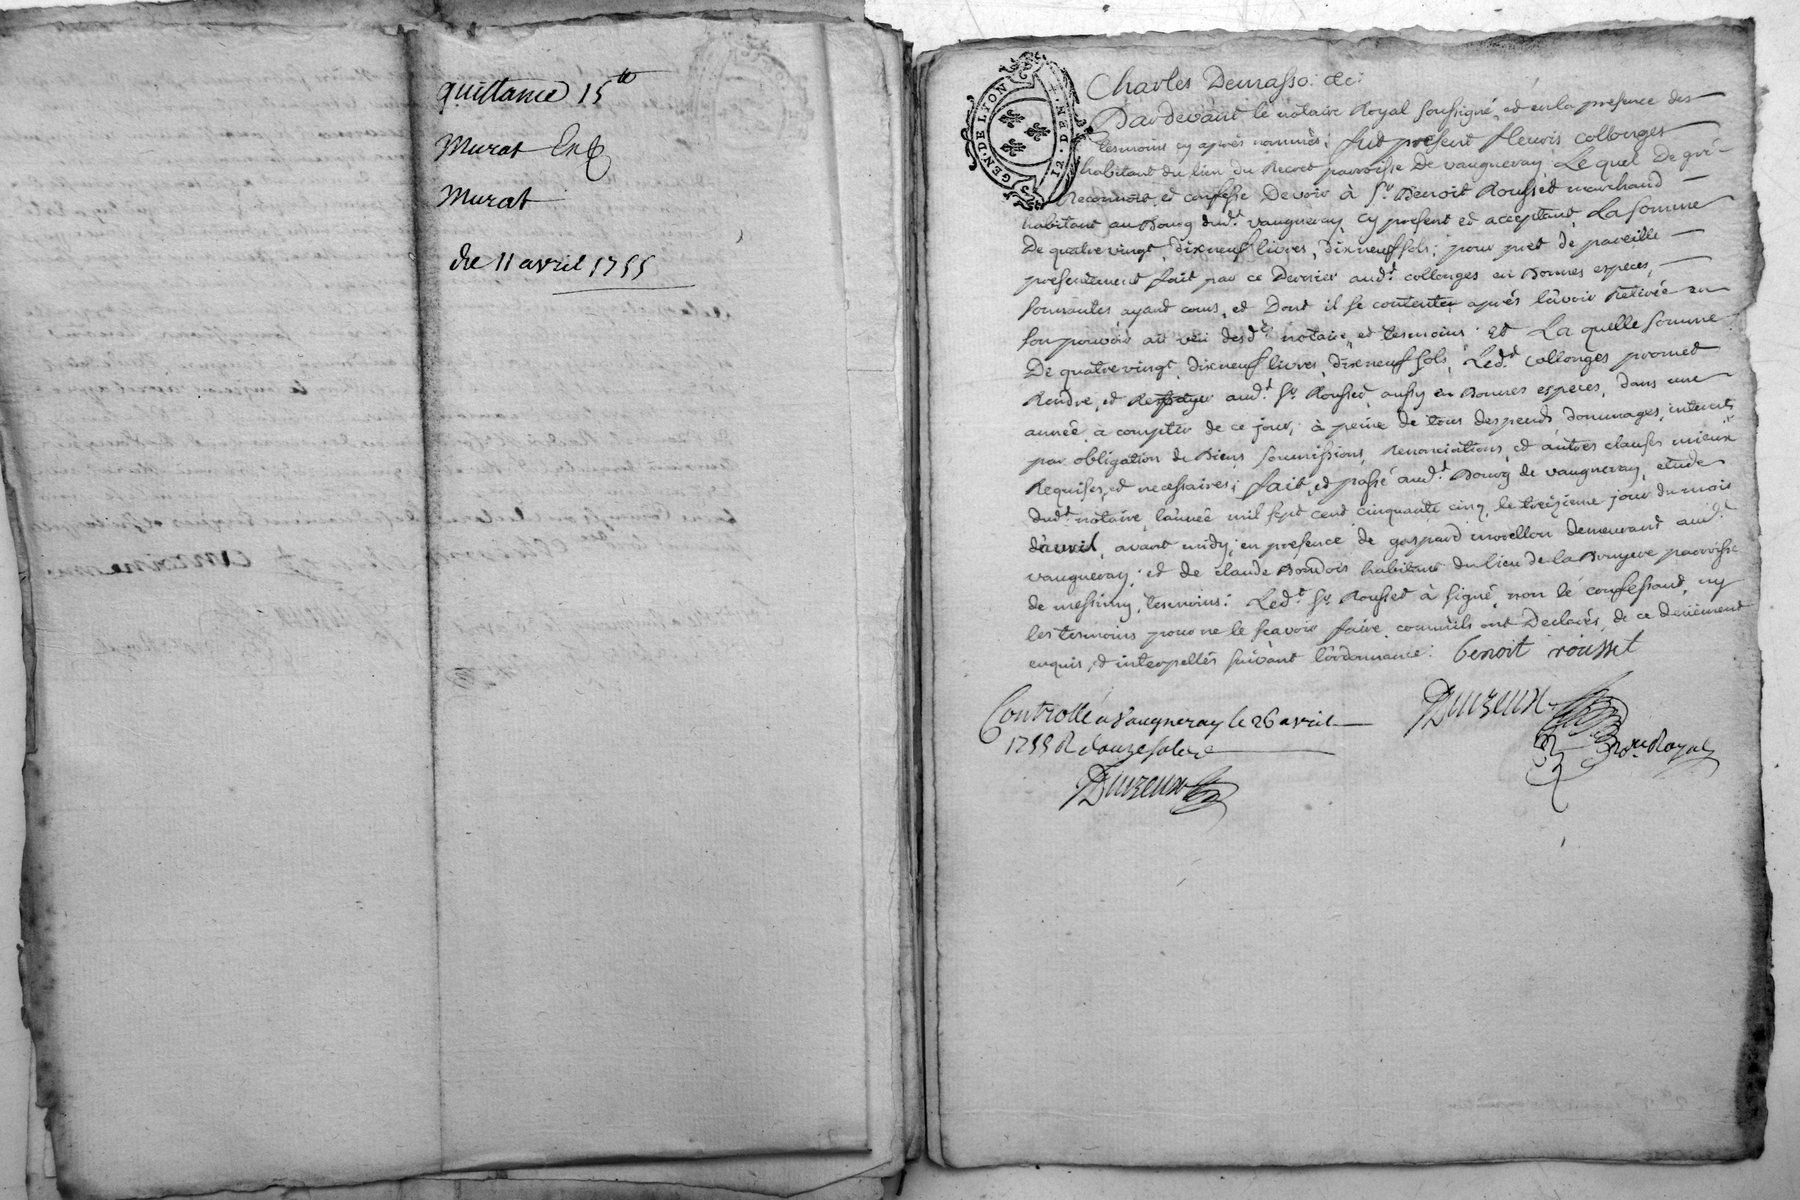 quittance 15 tt
Murat
Murat
du 11 avril 1755
GEN·DE LYON
12·DEN·T.
Charles Demasso: &c:
Pardevant, le notaire Royal soussigné, et en la presence des
tesmoins cy aprés nommés; fut présent fleuris collonges
habitant du lieu du Recret parroisse De vaugneray Lequel De gré
Reconnoit, et confesse Devoir à Sr. Benoit Rousset marchand
habitant au Bourg dudt. vaugneray, cy present et acceptant, La somme
De quatre vingt, dix neuf livres, dix neuf sols; pour prêt de pareille
présentement fait par ce Dernier audt. collonges en Bonnes especes,
sonnantes ayant cours, et Dont il se contente, aprés l'avoir Retirée en
son pouvoir au veu desdts. notaire, et tesmoins; Et La quelle somme
De quatre vingt, dix neuf livres, dix neuf sols, Ledt. collonges promet
Rendre, et Repayer audt. Sr. Rousset, aussy en Bonnes especes, dans une
année a compter de ce jour, à peine de tous despends, dommages, interets,
par obligation de Biens, soumissions, Renonciations, et autres clauses mieux
Requises, et necessaires; fait, et passé audt. Bourg de vaugneray, etude
dudt. notaire, l'année mil sept cent cinquante cinq, le treizieme jour du mois
d'avril, avant midy; en présence de gaspard morellon demeurant audt.
vaugneray, et de claude Bondois habitant du lieu de la Bruyere parroisse
de messimy, tesmoins: Ledt. Sr. Rousset à signé, non le confessant, ny
les tesmoins pour ne le sçavoir faire comm'ils ont Declarés, de ce deüement
enquis, et interpellés suivant l'ordonnance: benoit rousset
Controllé a Vaugneray le 26 avril
1755 R douze sols
Duizeux
Duizeux
Nore. Royal